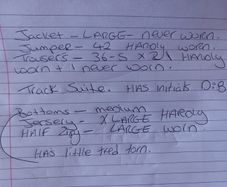 Jacket - LARGE - never worn.
Jumper - 42 HARDly worn.
Trousers - 36-S x 2 1 HARDly
worn + 1 never worn.
Track Suite. HAS initials O:B
Bottoms - medium
Jersery - X LARGE HARDly
HAlF Zip - LARGE worn
HAS little tred torn.